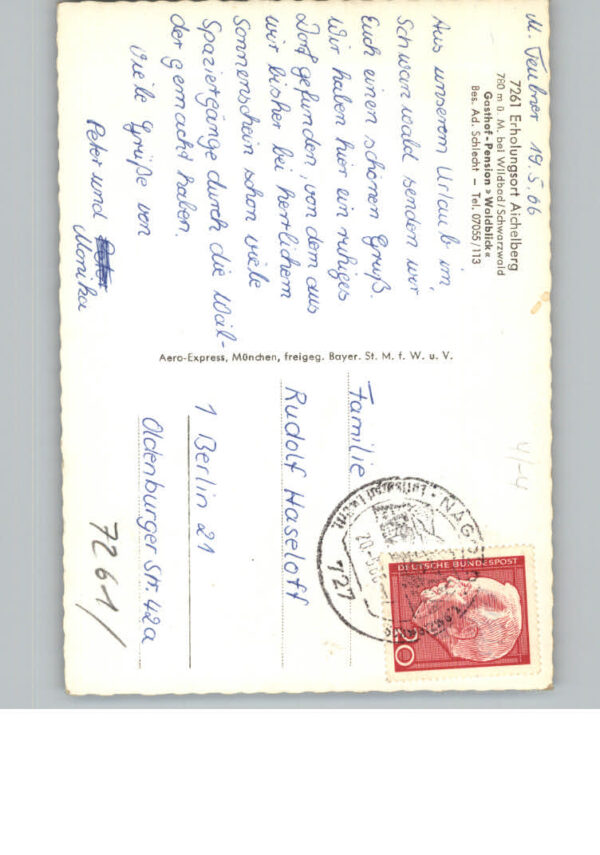 M. Teubner 19.5.66
7261 Erholungsort Aichelberg
780 m ü. M. bei Wildbad/Schwarzwald
Gasthof-Pension »Waldblick«
Bes. Ad. Schlecht — Tel. 07055/113
Aus unserem Urlaub im
Schwarzwald senden wir
Euch einen schönen Gruß.
Wir haben hier ein ruhiges
Dorf gefunden, von dem aus
wir bisher bei herrlichem
Sonnenschein schon viele
Spaziergänge durch die Wäl-
der gemacht haben.
Viele Grüße von
Peter und
Monika
Aero-Express, München, freigeg. Bayer. St. M. f. W. u. V.
4/-4
Familie
Rudolf Haseloff
1 Berlin 21
Oldenburger Str. 42a
7261/
727
NAGOLD
DEUTSCHE BUNDESPOST